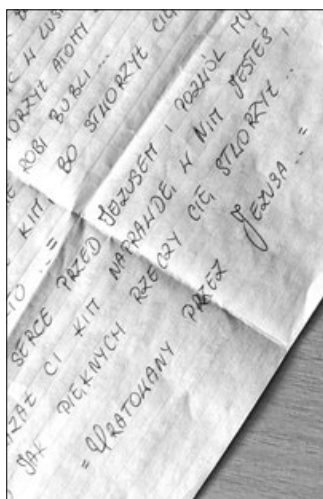 W LUS
ORZYŁ ATOMY
ROBI BUBLI...
KIM, BO STWORZYŁ CIĘ
TO ...=
SERCE PRZED JEZUSEM I POZWÓL MU
AZAŁ CI KIM NAPRAWDĘ W NIM JESTEŚ I
JAK PIĘKNYCH RZECZY CIĘ STWORZYŁ...
= URATOWANY PRZEZ JEZUSA...=